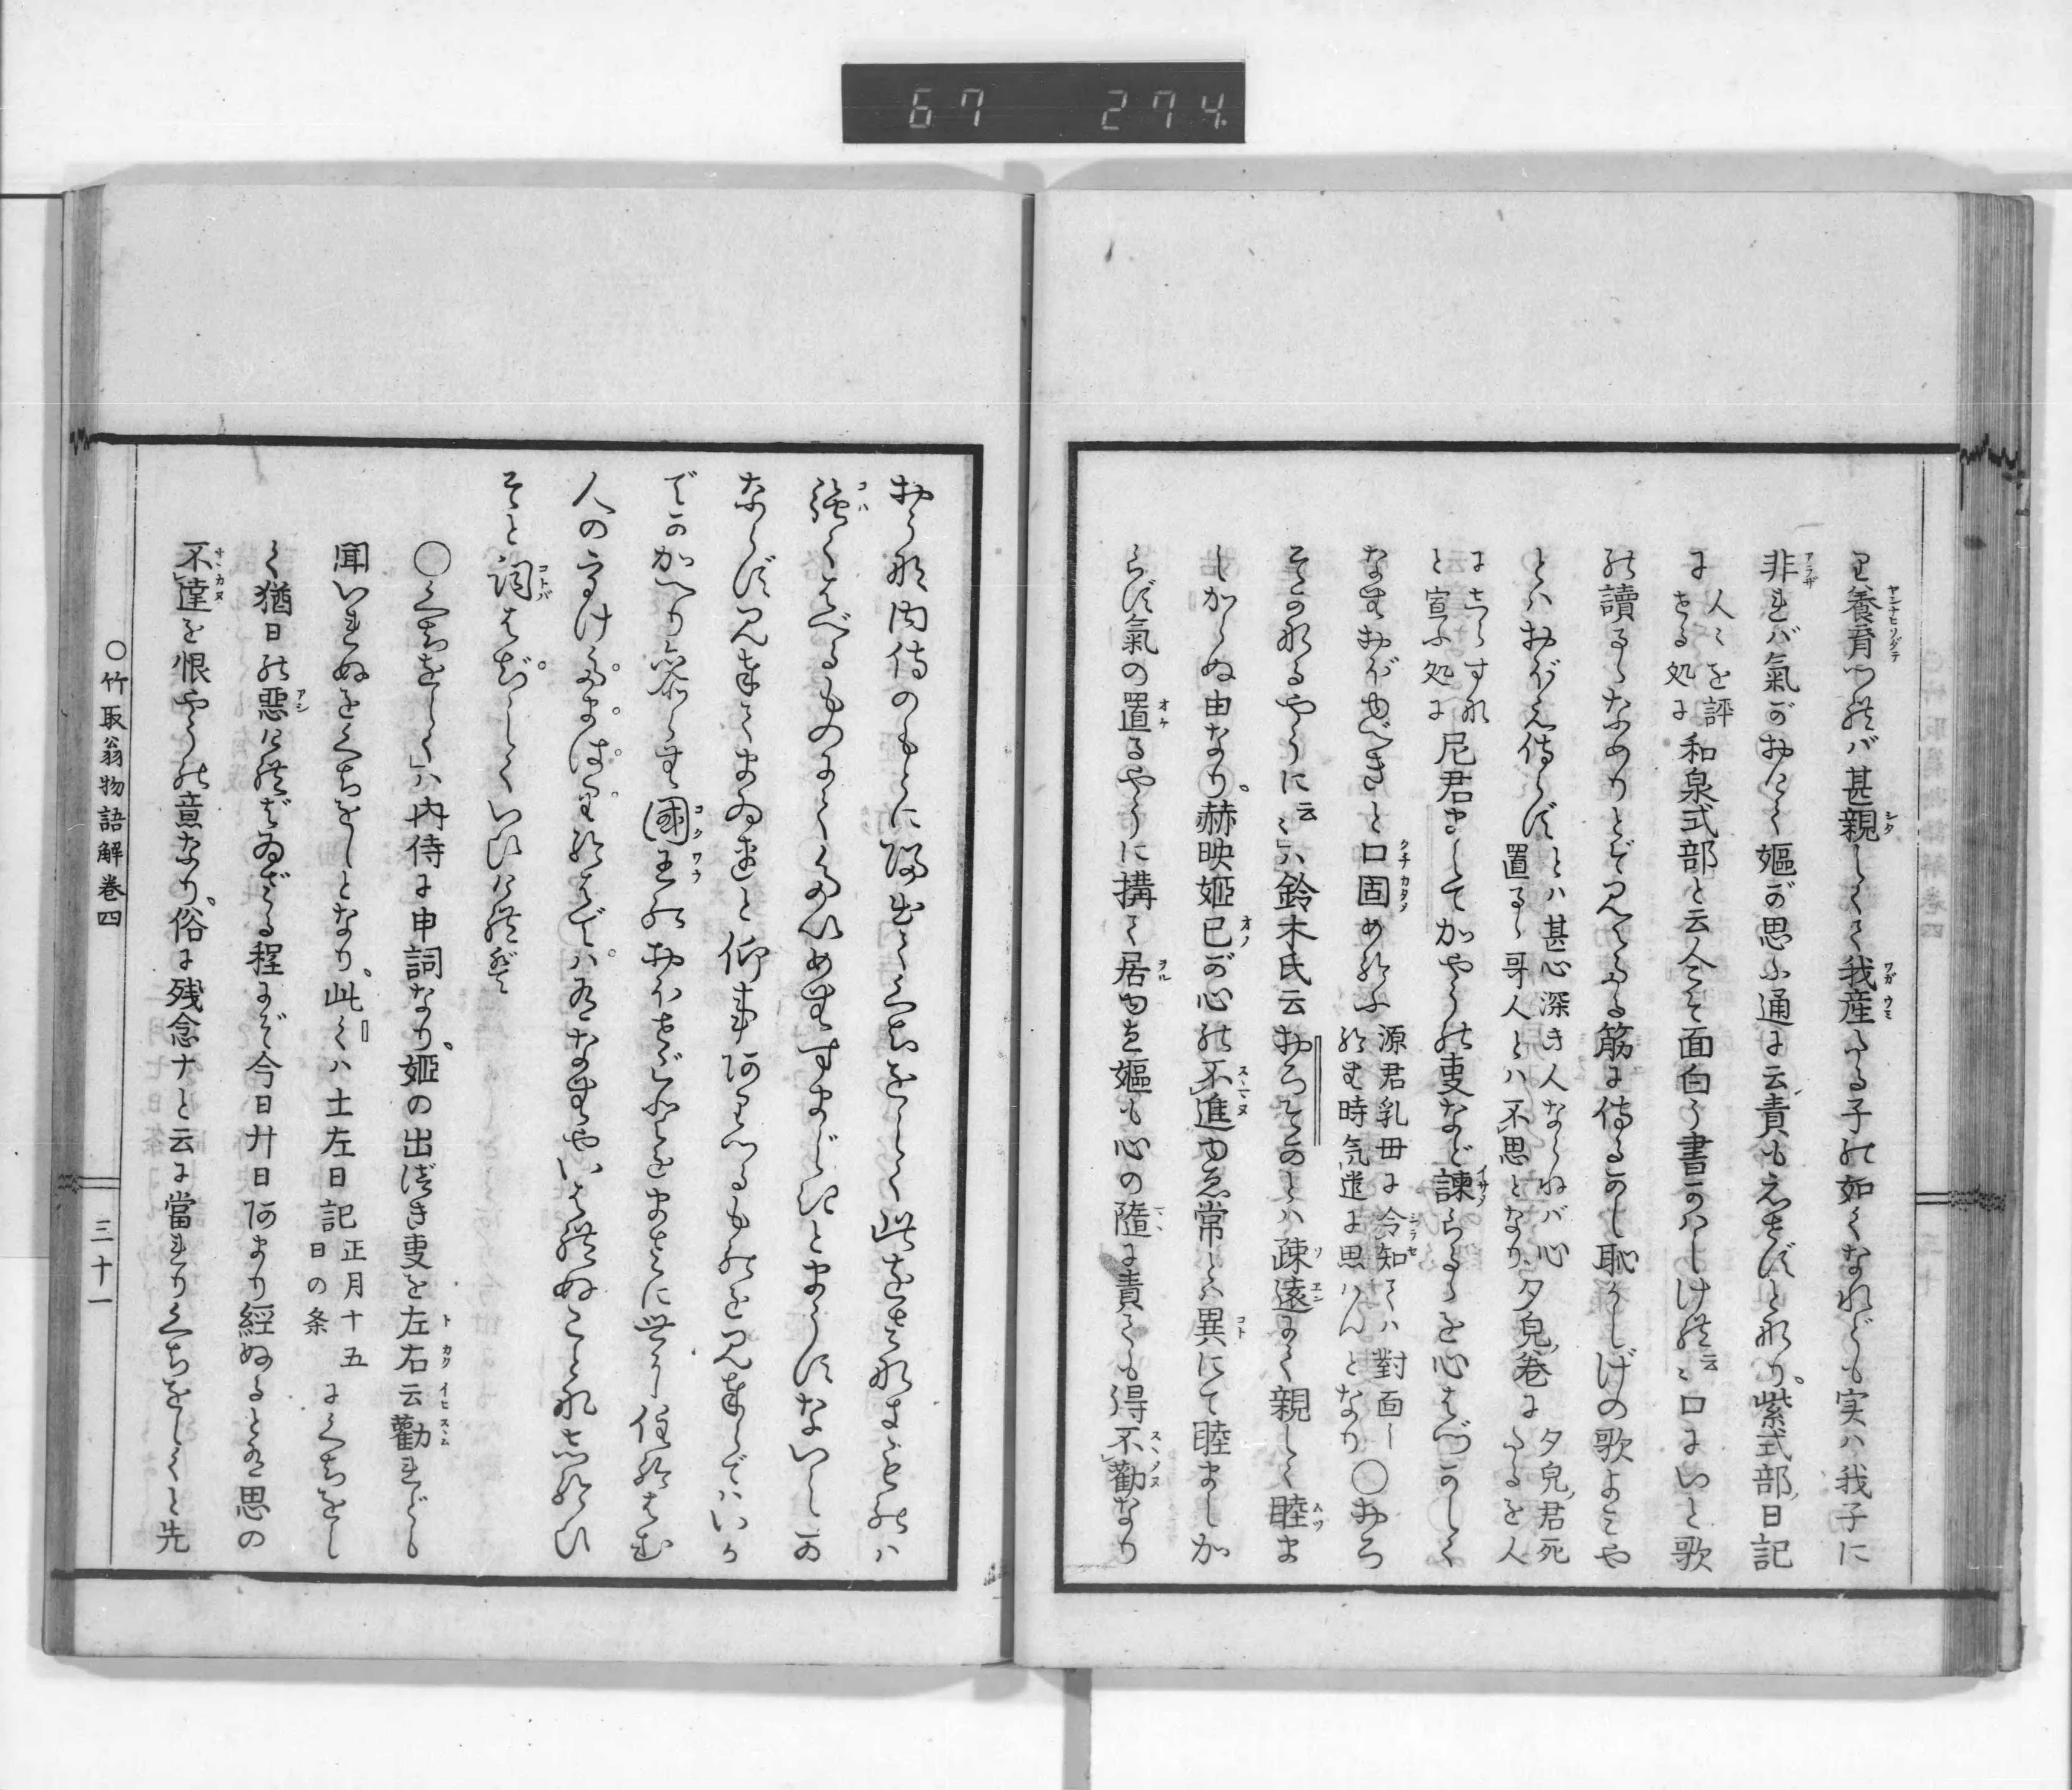 67 274
り養育つればゞ甚親しくて我産たる子の如くなれども実ハ我子に
非れバ氣がおけて嫗が思ふ通に云責もえせずと也紫式部日記
に人々を評せる処に和泉式部と云人こそ面白う書かハしけれ云々口にいと歌
の讀るゝなめりとぞ見えたる筋に侍るかし恥かしげの歌よミや
とハおぼえ侍らずとハ甚心深き人ならねバ心置るゝ哥人とハ不思となり夕皃巻に夕皃君死たるを人
にしらすなと宣ふ処に尼君ましてかやうの叓など諫らるゝを心はづかしく
なむおぼゆべきと口固め給ふ源君乳母に令知てハ對面し給む時気遣に思はんとなり〇おろ
そかなるやうに云々ハ鈴木氏云おろそかとハ疎遠にて親しく睦ま
しからぬ由なり〇赫映姫己が心の不進ゆゑ常とハ異にて睦ましか
らず氣の置るやうに搆て居ゆゑ嫗も心の隨に責ても得不勧なり
おうな内侍のもとに帰出てくちをしく此をさなきものハ
強くはべるものにてたいめすまじきとまうすないしか
ならず見奉てまゐれと仰事ありつるものを見奉らでハいか
でかかへり参らむ國王のおほせごとをまさに世に住給はむ
人のうけたまはり給はでハありなむやいはれぬことなし給ひ
そと詞はぢしくいひければ
〇くちをしく」ハ内侍に申詞なり姫の出づき叓を左右云勸れども
聞いれぬをくちをしとなり此くハ土左日記正月十五日の条にくちをし
く猶日の惡ければゐざる程にぞ今日廿日あまり經ぬるとある思の
不達を恨やうの意なり俗に残念ナと云に當れりくちをしくと先
〇竹取翁物語解巻四
三十一